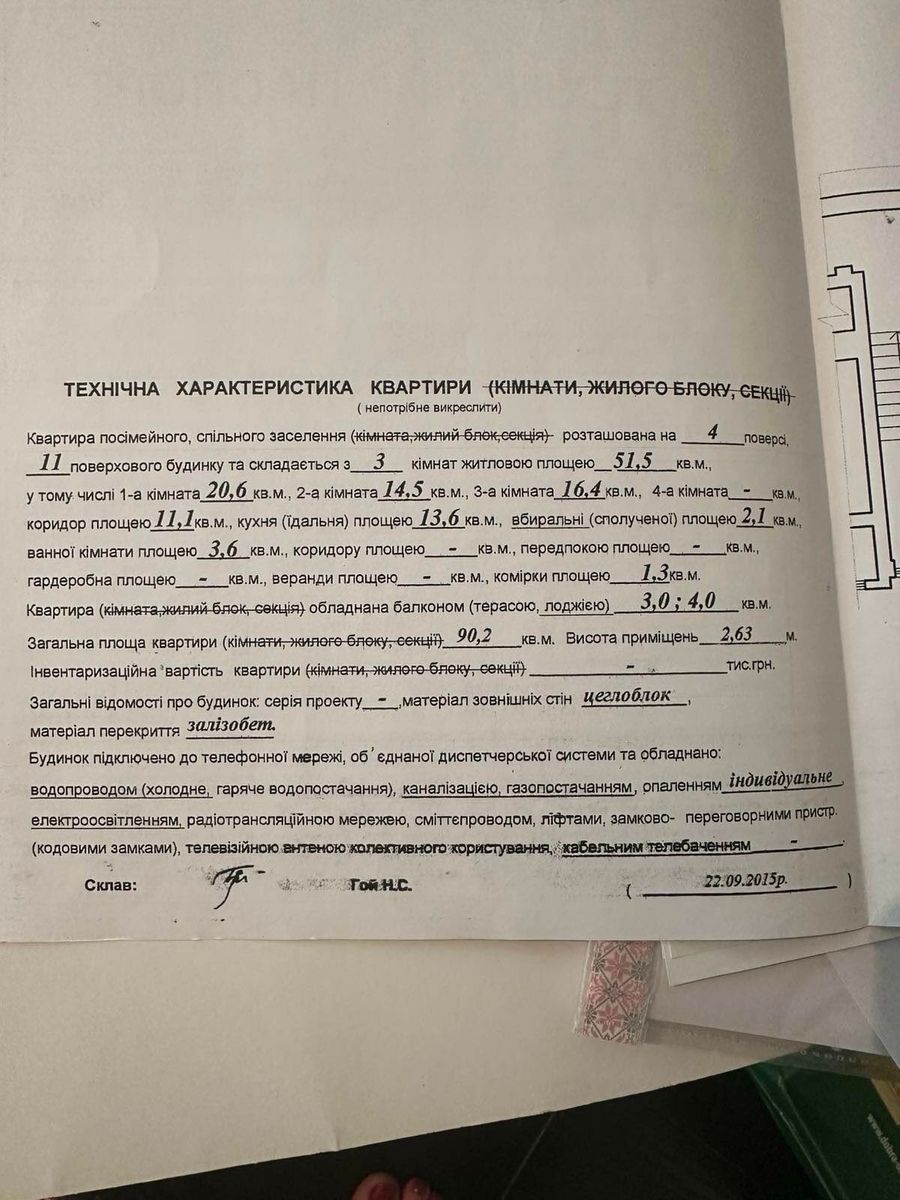 ТЕХНІЧНА ХАРАКТЕРИСТИКА КВАРТИРИ (КІМНАТИ, ЖИЛОГО БЛОКУ, СЕКЦІЇ)
( непотрібне викреслити)
Квартира посімейного, спільного заселення (кімната,жилий блок,секція) розташована на 4 поверсі,
11 поверхового будинку та складається з 3 кімнат житловою площею 51,5 кв.м.,
у тому числі 1-а кімната 20,6 кв.м., 2-а кімната 14,5 кв.м., 3-а кімната 16,4 кв.м., 4-а кімната - кв.м.,
коридор площею 11,1 кв.м., кухня (їдальня) площею 13,6 кв.м., вбиральні (сполученої) площею 2,1 кв.м.,
ванної кімнати площею 3,6 кв.м., коридору площею - кв.м., передпокою площею - кв.м.,
гардеробна площею - кв.м., веранди площею - кв.м., комірки площею 1,3 кв.м.
Квартира (кімната,жилий блок, секція) обладнана балконом (терасою, лоджією) 3,0 ; 4,0 кв.м.
Загальна площа квартири (кімнати, жилого блоку, секції) 90,2 кв.м. Висота приміщень 2,63 м.
Інвентаризаційна вартість квартири (кімнати, жилого блоку, секції) - тис.грн.
Загальні відомості про будинок: серія проекту - ,матеріал зовнішніх стін цеглоблок ,
матеріал перекриття залізобет.
Будинок підключено до телефонної мережі, об'єднаної диспетчерської системи та обладнано:
водопроводом (холодне, гаряче водопостачання), каналізацією, газопостачанням, опаленням індивідуальне
електроосвітленням, радіотрансляційною мережею, сміттєпроводом, ліфтами, замково- переговорними пристр.
(кодовими замками), телевізійною антеною колективного користування, кабельним телебаченням -
Склав: Гой Н.С. ( 22.09.2015р. )